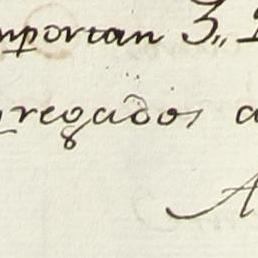 importan 3,,
gregados a
A